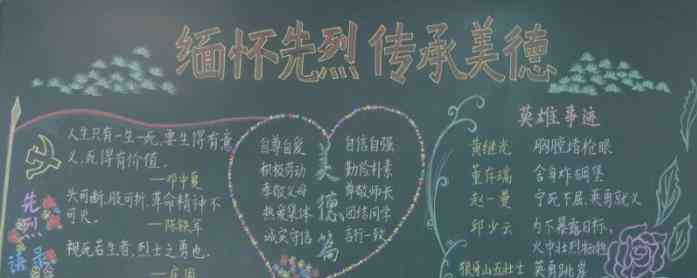 缅怀先烈 传承美德
人生只有一生一死,要生得有意
义,死得有价值。
——邓中夏
头可断,肢可折,革命精神不
可灭。
——陈铁军
视死若生者,烈士之勇也。
先烈语录
自尊自爱
积极劳动
孝敬父母
热爱集体
诚实守信
美德篇
自信自强
勤俭朴素
尊敬师长
团结同学
言行一致
英雄事迹
黄继光 胸膛堵枪眼
董存瑞 舍身炸碉堡
赵一曼 宁死不屈,英勇就义
邱少云 为不暴露目标,
火中壮烈牺牲
狼牙山五壮士 英勇跳崖